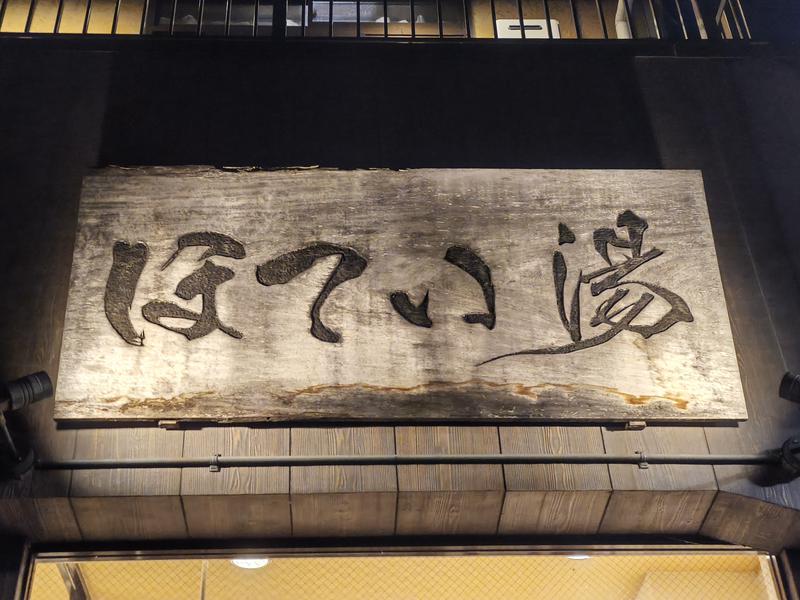 ほてい湯